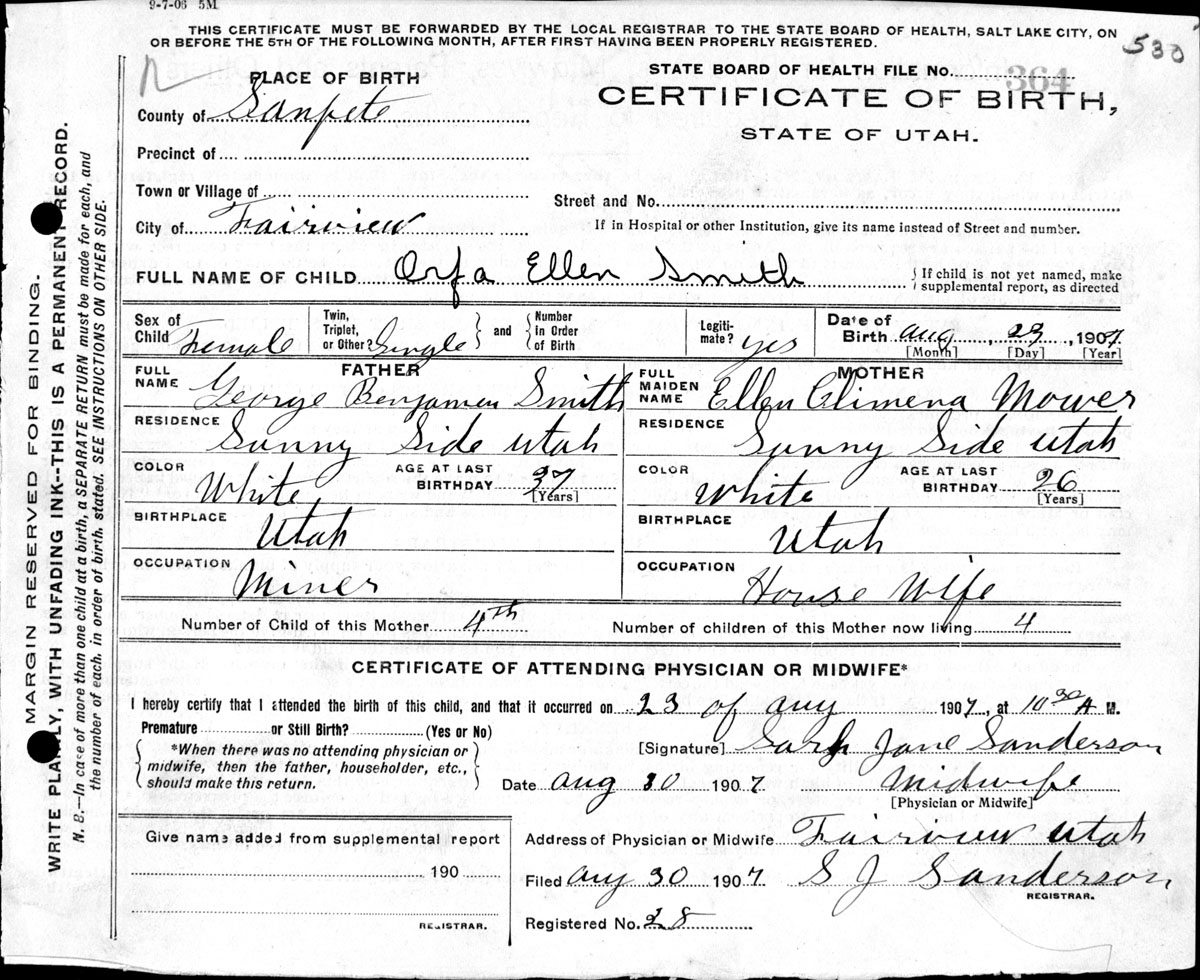 9-7-06 5M
THIS CERTIFICATE MUST BE FORWARDED BY THE LOCAL REGISTRAR TO THE STATE BOARD OF HEALTH, SALT LAKE CITY, ON
OR BEFORE THE 5TH OF THE FOLLOWING MONTH, AFTER FIRST HAVING BEEN PROPERLY REGISTERED.
530
PLACE OF BIRTH
STATE BOARD OF HEALTH FILE No. 364
County of Sanpete
CERTIFICATE OF BIRTH,
STATE OF UTAH.
Precinct of
Town or Village of
Street and No.
City of Fairview
If in Hospital or other Institution, give its name instead of Street and number.
FULL NAME OF CHILD Orfa Ellen Smith
{If child is not yet named, make
supplemental report, as directed
Sex of Child Female
Twin, Triplet, or Other? Single
and
Number in Order of Birth
Legiti-mate? yes
Date of Birth Aug 23, 1907
[Month] [Day] [Year]
FATHER
FULL NAME George Benjamen Smith
RESIDENCE Sunny Side Utah
COLOR White
AGE AT LAST BIRTHDAY 37 [Years]
BIRTHPLACE Utah
OCCUPATION Miner
MOTHER
FULL MAIDEN NAME Ellen Climena Mower
RESIDENCE Sunny Side Utah
COLOR White
AGE AT LAST BIRTHDAY 26 [Years]
BIRTHPLACE Utah
OCCUPATION House Wife
Number of Child of this Mother 4th
Number of children of this Mother now living 4
CERTIFICATE OF ATTENDING PHYSICIAN OR MIDWIFE*
I hereby certify that I attended the birth of this child, and that it occurred on 23 of Aug 1907, at 10 30 A M.
Premature or Still Birth? (Yes or No)
*When there was no attending physician or
midwife, then the father, householder, etc.,
should make this return.
[Signature] Sarh Jane Sanderson
Date Aug 30 1907
Midwife
[Physician or Midwife]
Give name added from supplemental report
190
REGISTRAR.
Address of Physician or Midwife Fairview Utah
Filed Aug 30 1907 S J Sanderson
REGISTRAR.
Registered No. 28
MARGIN RESERVED FOR BINDING.
WRITE PLAINLY, WITH UNFADING INK--THIS IS A PERMANENT RECORD.
N. B.—In case of more than one child at a birth, a SEPARATE RETURN must be made for each, and
the number of each, in order of birth, stated. SEE INSTRUCTIONS ON OTHER SIDE.